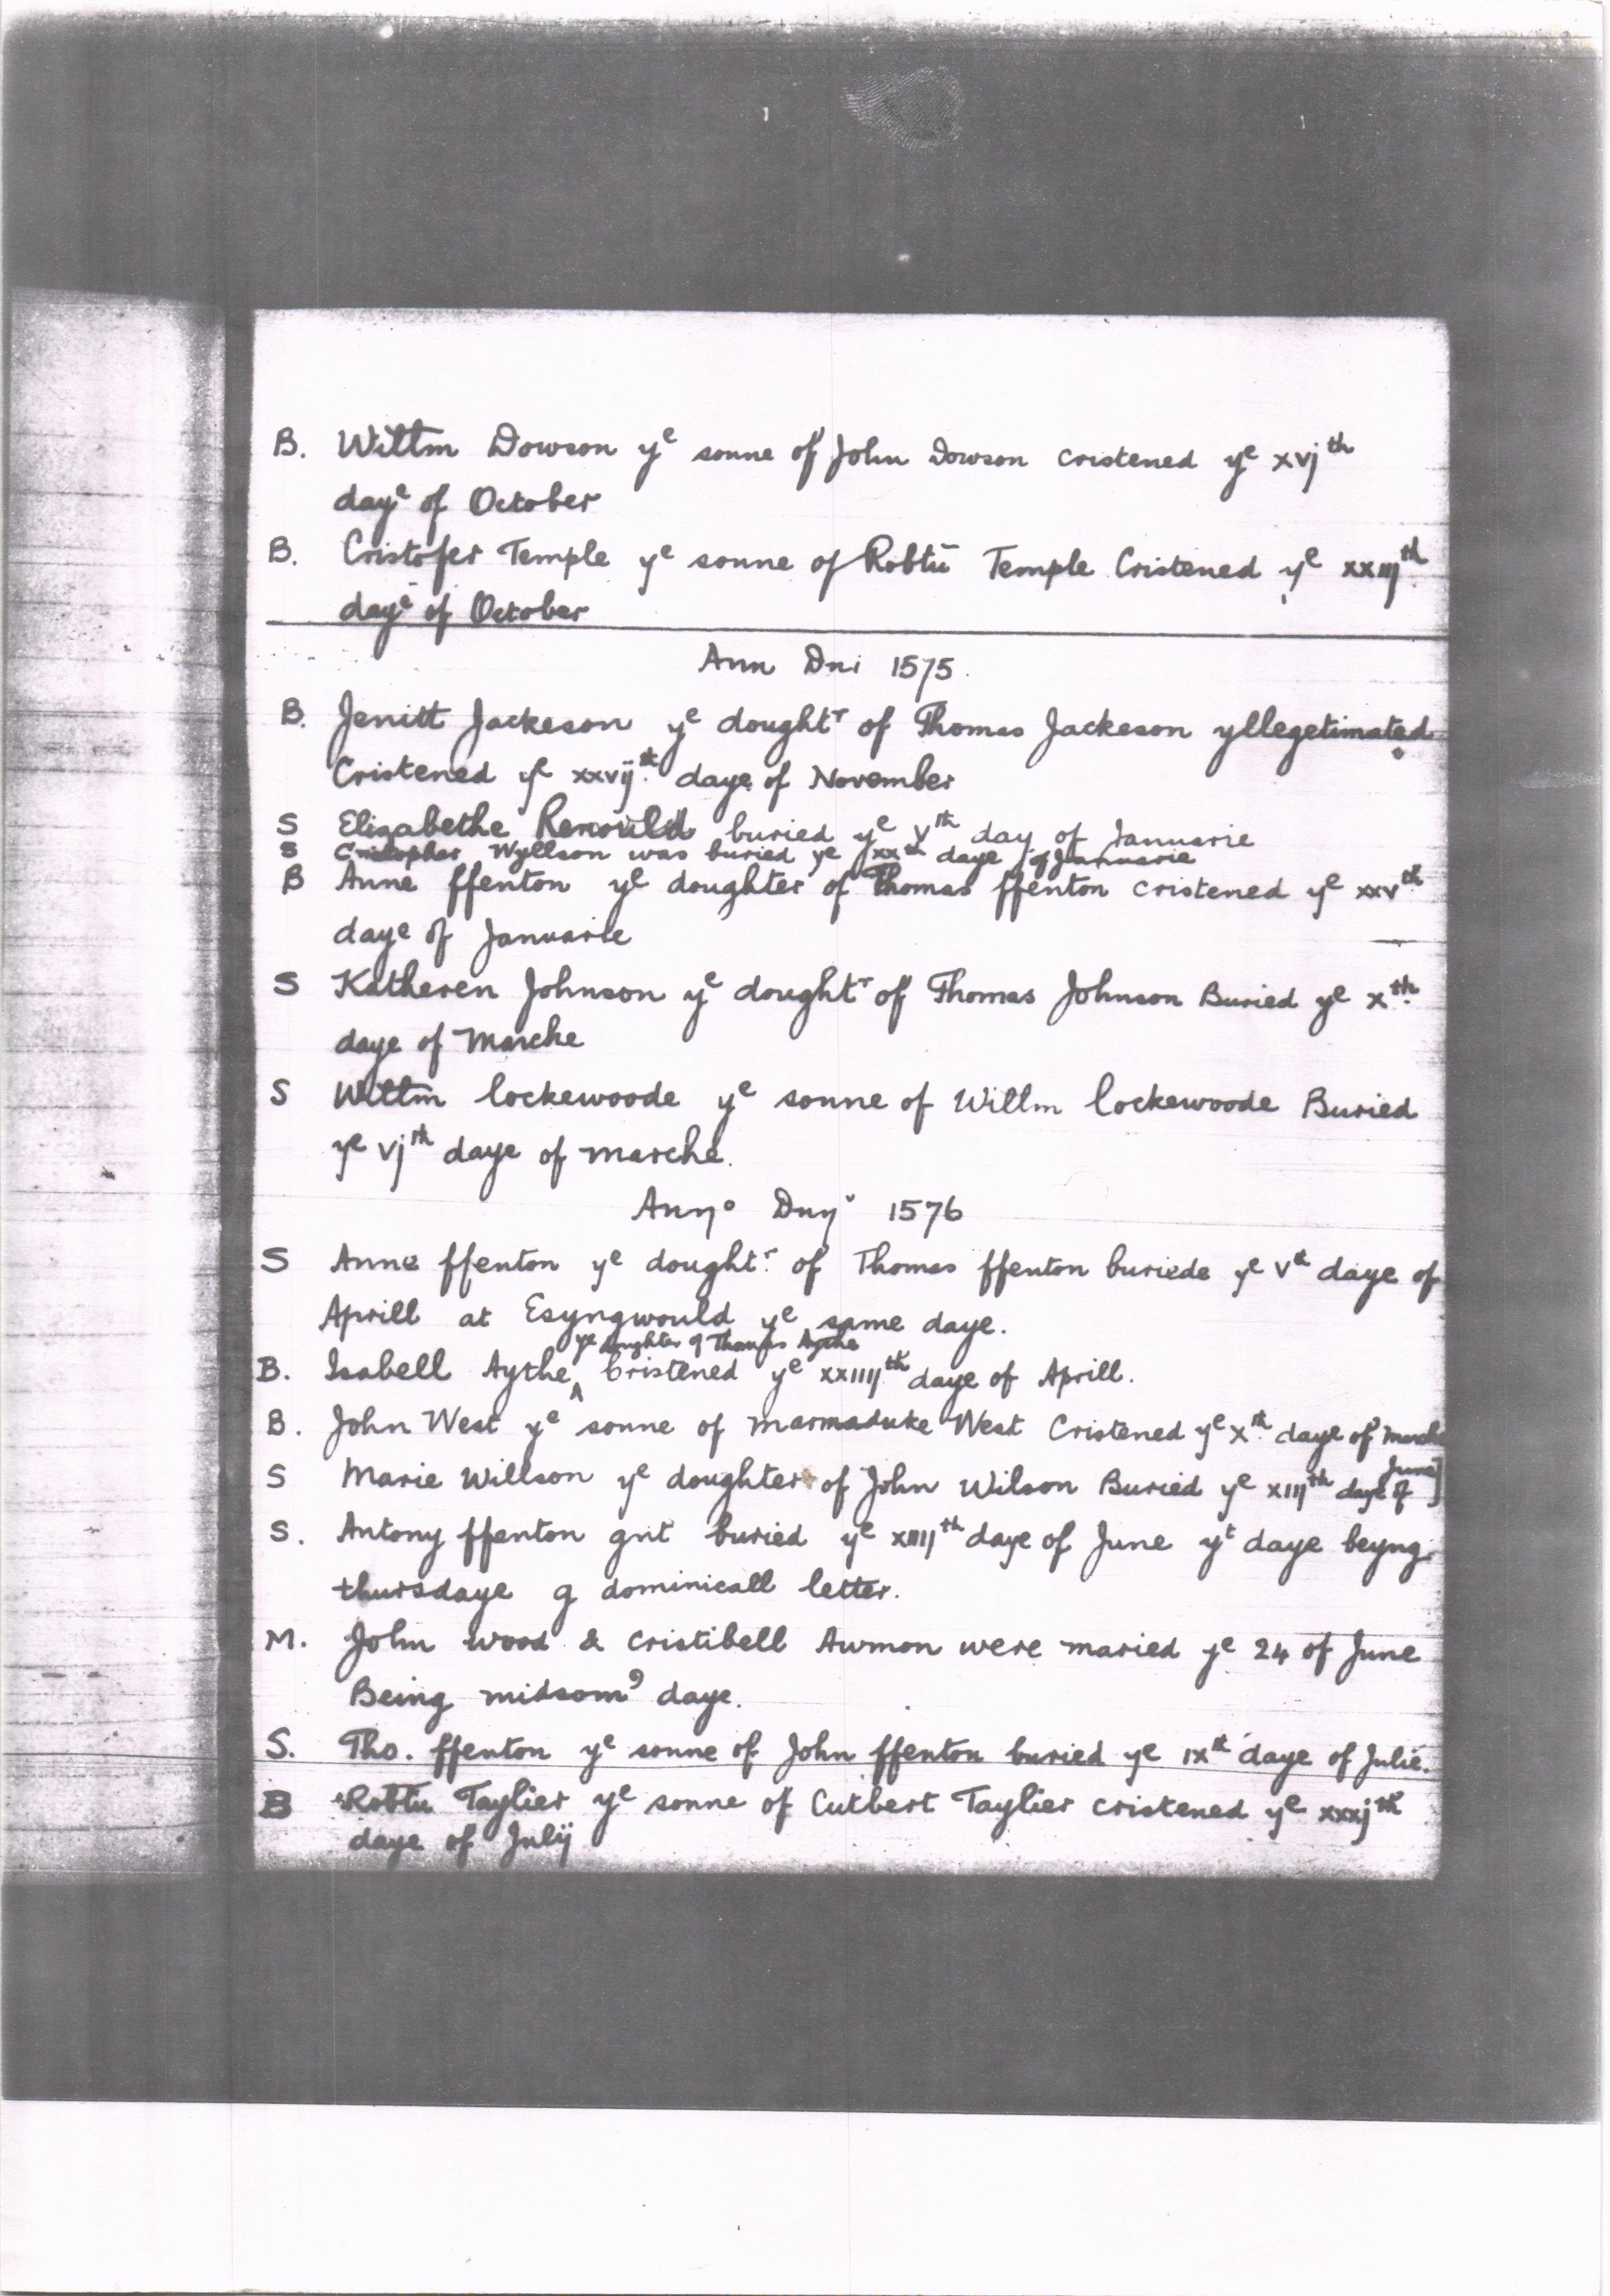 B. Willm Dowson yᵉ sonne of John Dowson cristened yᵉ xvjᵗʰ
dayᵉ of October
B. Cristofer Temple yᵉ sonne of Robtū Temple Cristened yᵉ xxiijᵗʰ
dayᵉ of October
Ann Dni 1575.
B. Jenitt Jackeson yᵉ doughtʳ of Thomas Jackeson yllegetimated
Cristened yᵉ xxvijᵗʰ daye of November
S Elizabethe Renould buried yᵉ vᵗʰ day of Januarie
S Cristopher Wyllson was buried ye xxᵗʰ daye of Januarie
B Anne ffenton yᵉ doughter of Thomas ffenton cristened yᵉ xxvᵗʰ
daye of Januarie
S Katheren Johnson yᵉ doughtʳ of Thomas Johnson Buried yᵉ xᵗʰ
daye of Marche
S Willm lockewoode yᵉ sonne of Willm lockewoode Buried
yᵉ vjᵗʰ daye of marche.
Anyᵒ Dnyⁱ 1576
S Anne ffenton yᵉ doughtʳ of Thomas ffenton buriede yᵉ vᵗʰ daye of
Aprill at Esyngwould yᵉ same daye.
ye doughter of Thomas Aythe
B. Isabell Aythe ^ Cristened yᵉ xxiiijᵗʰ daye of Aprill.
B. John West yᵉ sonne of Marmaduke West Cristened yᵉ xᵗʰ daye of marche
June]
S Marie Willson yᵉ doughter of John Wilson Buried yᵉ xiijᵗʰ daye of ]
S. Antony ffenton gnt buried yᵉ xiiijᵗʰ daye of June yᵗ daye beyng
thursdaye g dominicall letter.
M. John Wood & Cristibell Awmon were maried yᵉ 24 of June
Being midsom⁹ daye.
S. Tho. ffenton yᵉ sonne of John ffenton buried yᵉ ixᵗʰ daye of Julie.
B Robtū Taylier yᵉ sonne of Cutbert Taylier cristened yᵉ xxxjᵗʰ
daye of Julij